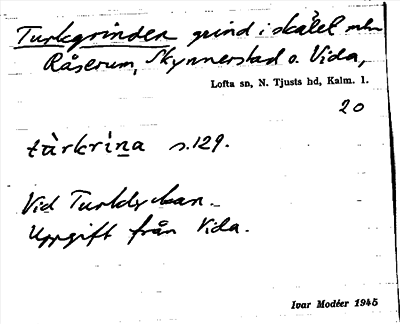 Turkgrinden grind i skälet mln
Råserum, Skynnerstad o. Vida,
Lofta sn, N. Tjusts hd, Kalm. l.
20
tùrkrìna s.129.
Vid Turkdyckan.
Uppgift från Vida.
Ivar Modéer 1945